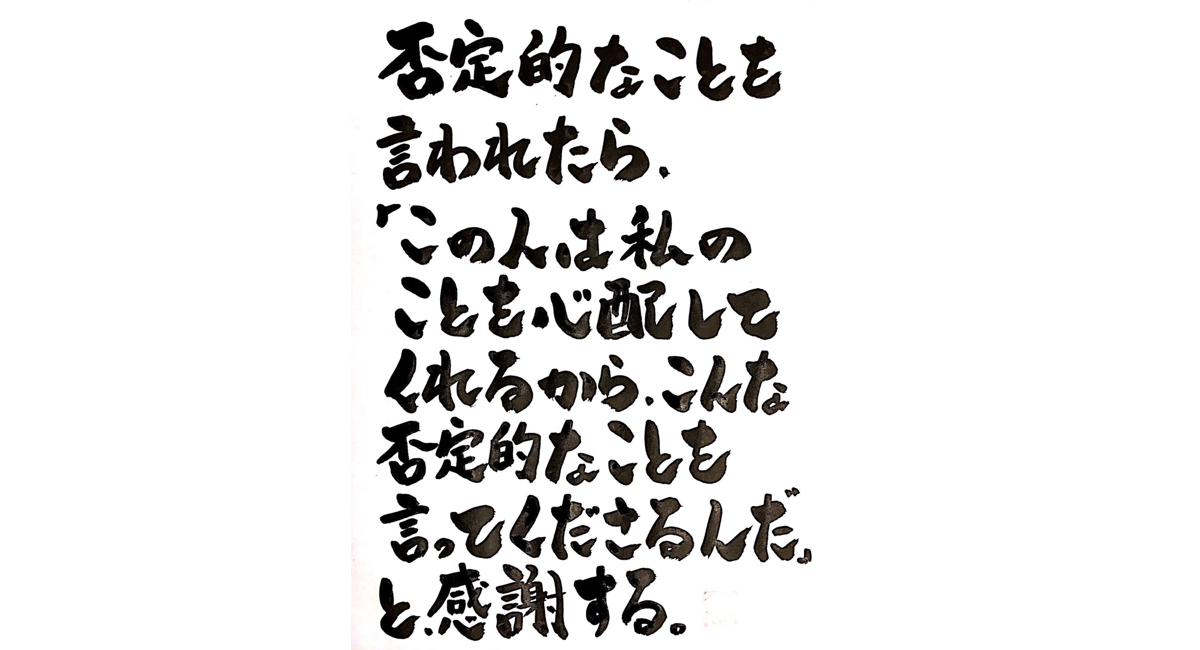 否定的なことを
言われたら、
「この人は私の
ことを心配して
くれるから、こんな
否定的なことを
言ってくださるんだ」
と、感謝する。